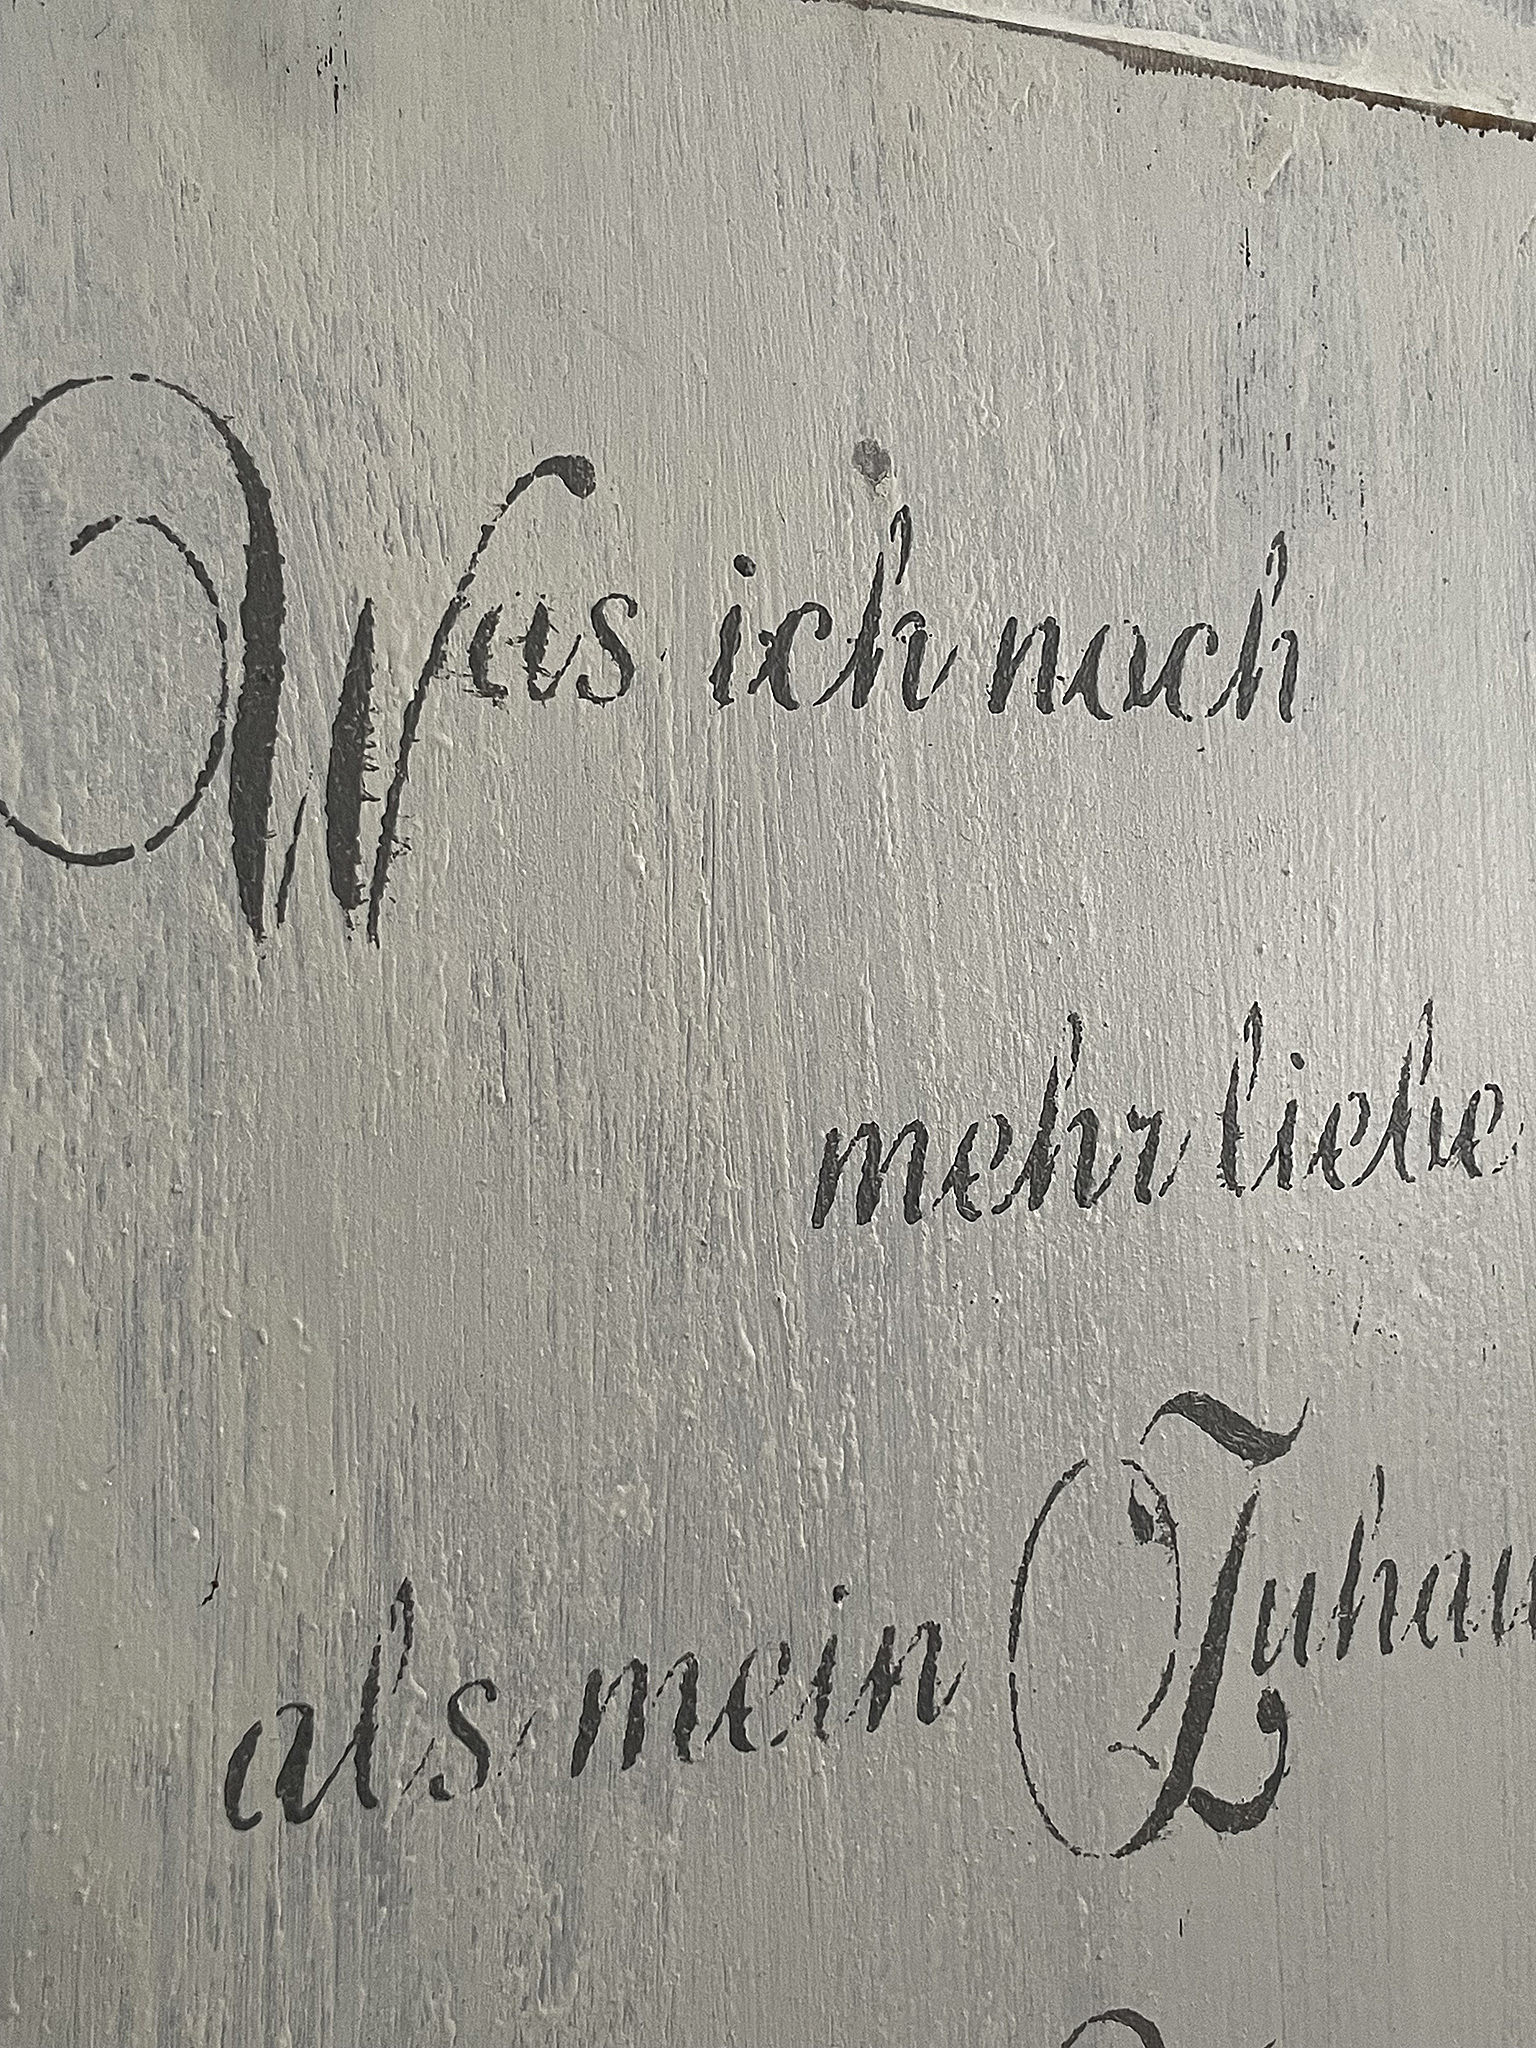 Was ich noch
mehr liebe
als mein Zuhau